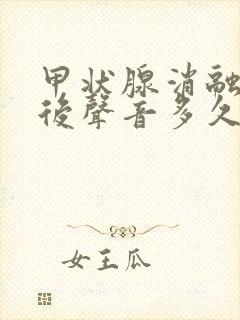 甲状腺消融
後聲音多久
女王瓜